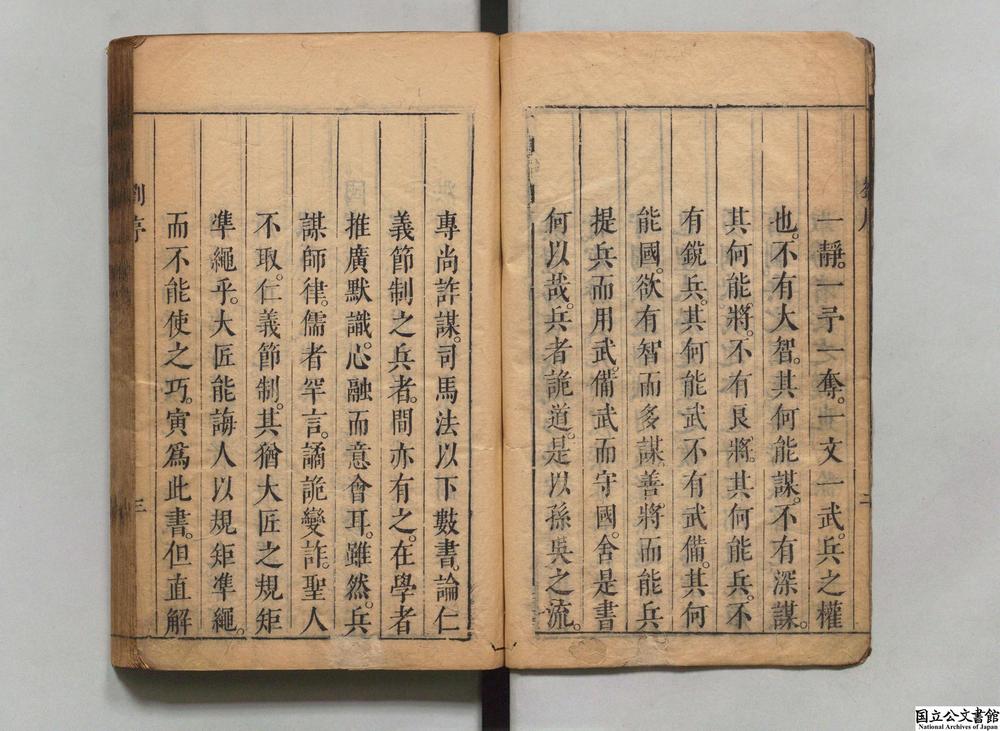 一靜。一予一奪。一文一武。兵之權
也。不有大智。其何能謀。不有深謀。
其何能將。不有良將。其何能兵。不
有銳兵。其何能武。不有武備。其何
能國。欲有智而多謀。善將而能兵。
提兵而用武。備武而守國。舍是書
何以哉。兵者詭道。是以孫吳之流。
專尚詐謀。司馬法以下數書。論仁
義節制之兵者。間亦有之。在學者
推廣默識。心融而意會耳。雖然。兵
謀師律。儒者罕言。譎詭變詐。聖人
不取。仁義節制。其猶大匠之規矩
準繩乎。大匠能誨人以規矩準繩。
而不能使之巧。寅爲此書。但直解
二
劉序
三
国立公文書館
National Archives of Japan